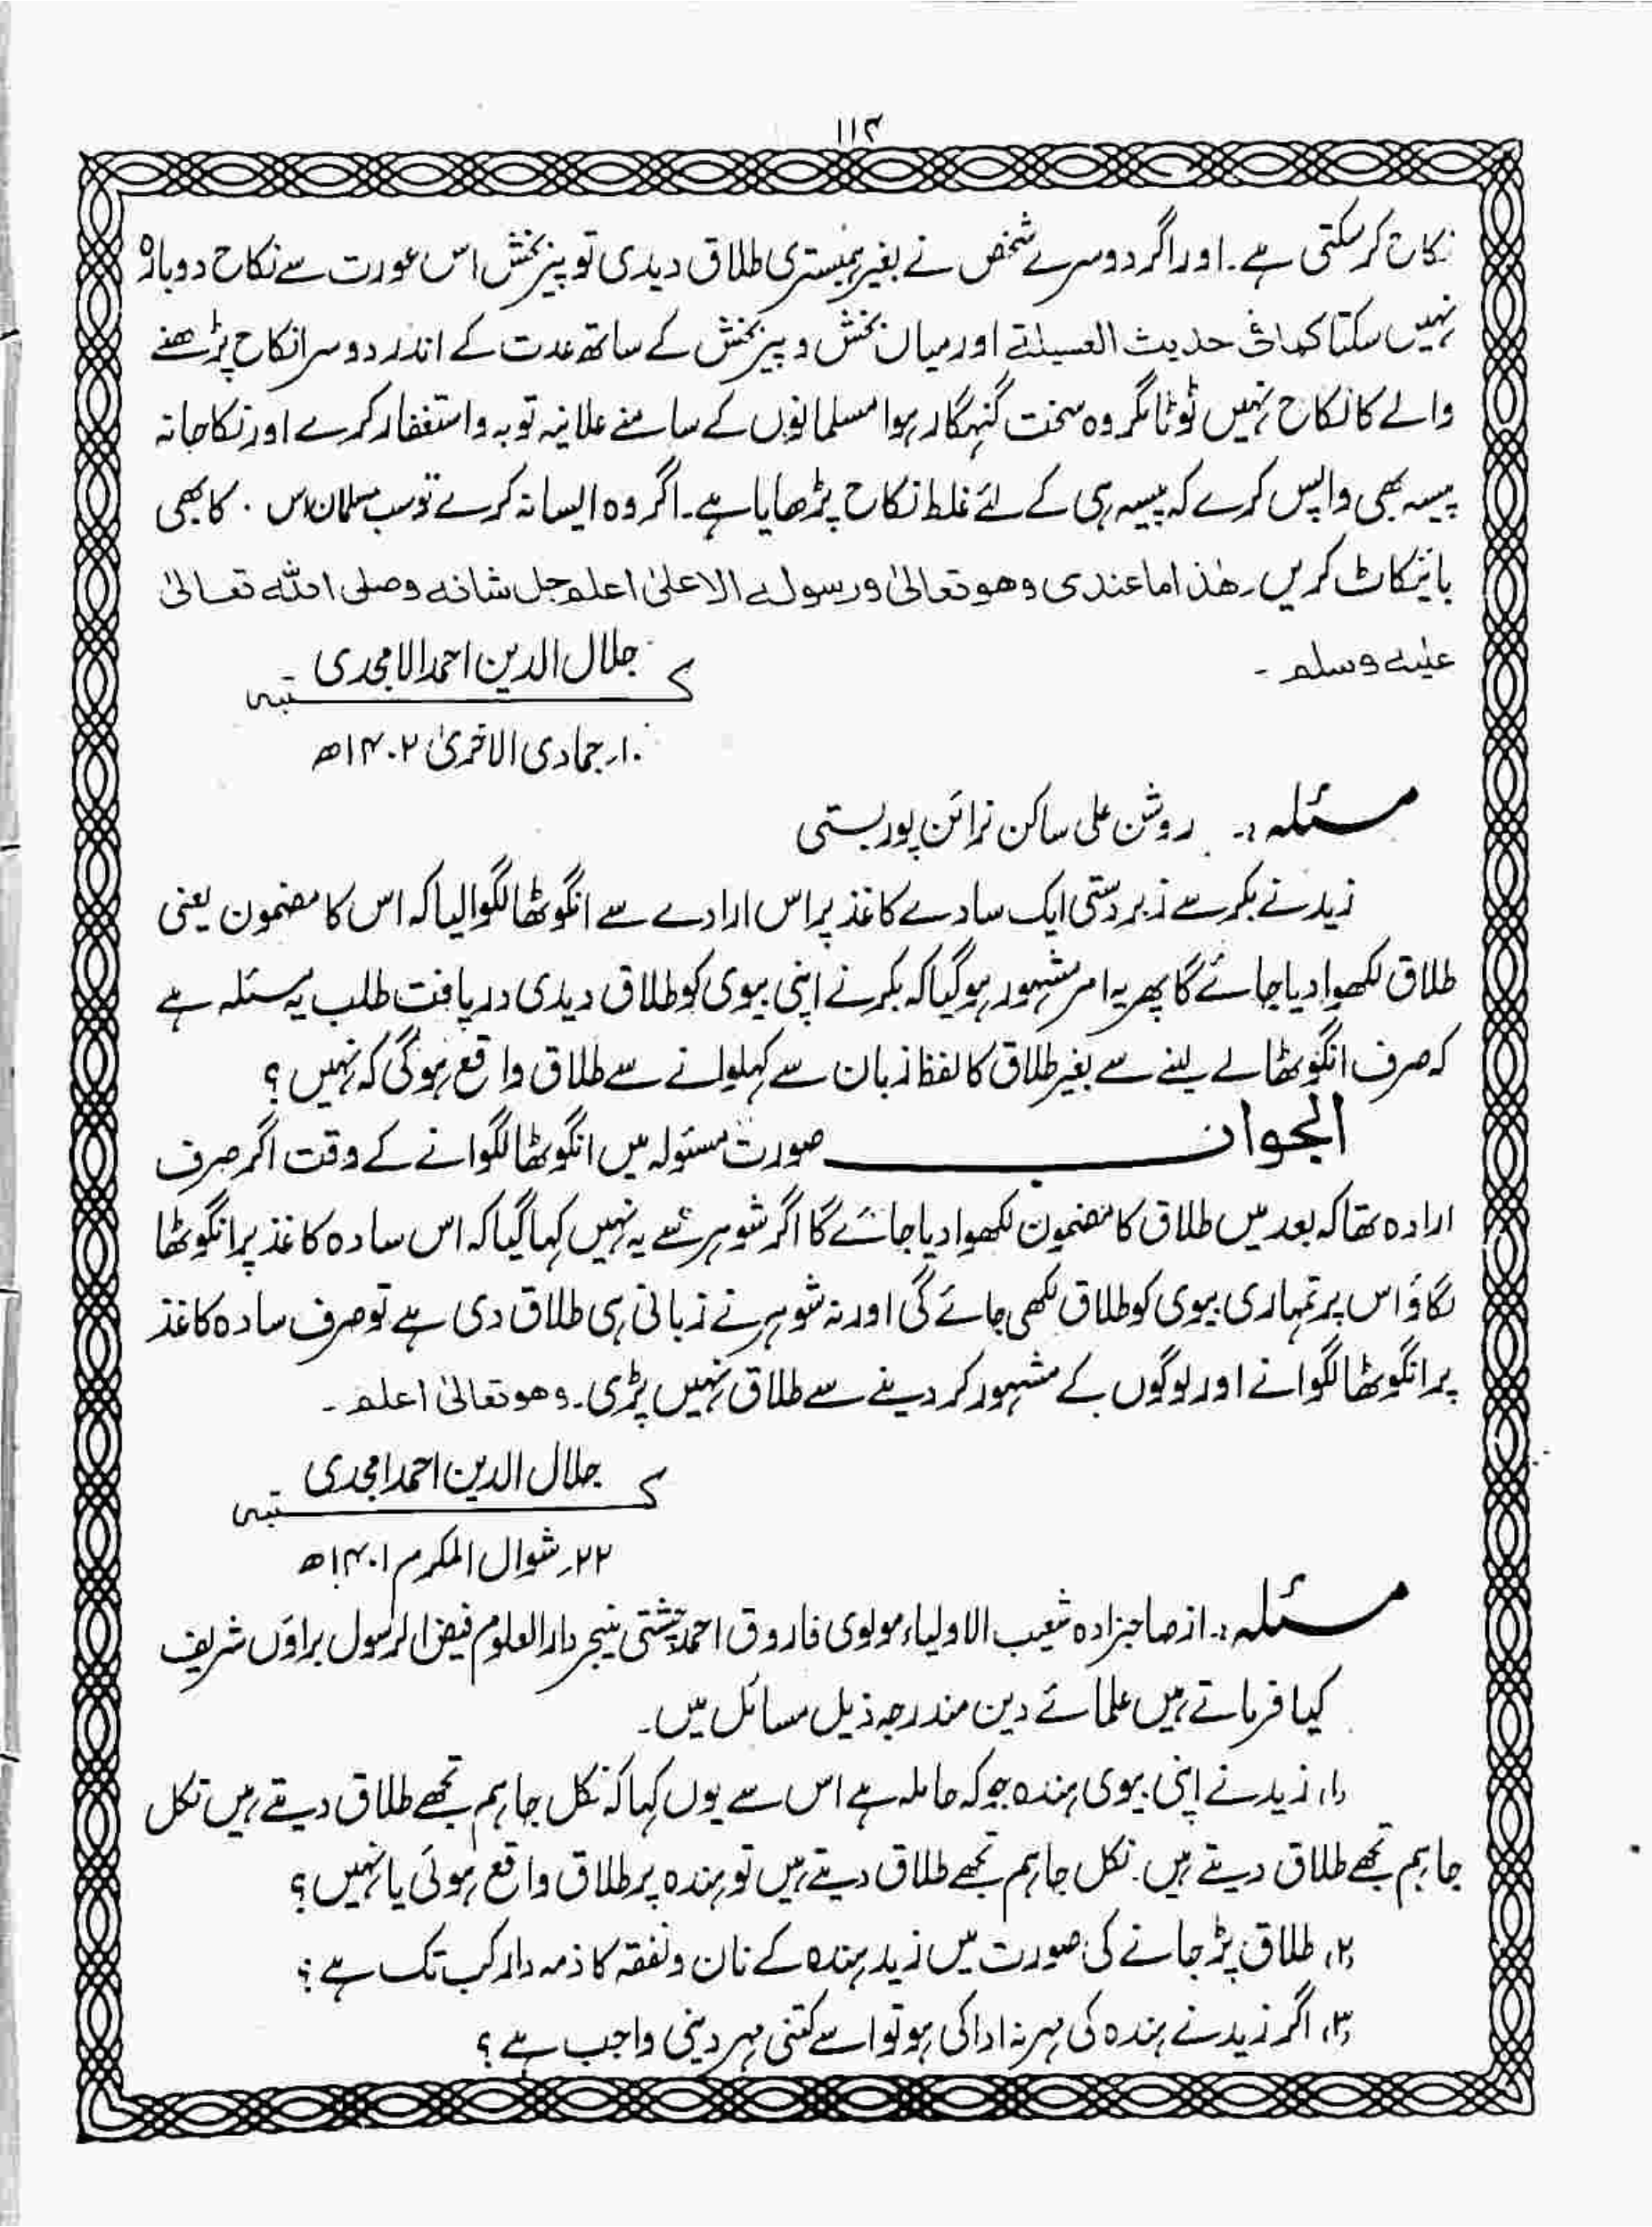 ۱۱۴
نکاح کر سکتی ہے۔ اور اگر دوسرے شخص نے بغیر ہمبستری طلاق دیدی تو پیر بخش اس عورت سے نکاح دوبارہ
نہیں سکتا کما فی حدیث العسیلۃ اور میاں بخش و پیر بخش کے ساتھ عدت کے اندر دوسرا نکاح پڑھنے
والے کا نکاح نہیں ٹوٹا مگر وہ سخت گنہگار ہوا مسلمانوں کے سامنے علانیہ توبہ و استغفار کرے اور نکاحانہ
پیسہ بھی واپس کرے کہ پیسہ ہی کے لئے غلط نکاح پڑھایا ہے۔ اگر وہ ایسا نہ کرے تو سب مسلمان اس کا بھی
بائیکاٹ کریں۔ ھٰذا ما عندی وھو تعالیٰ ورسولہ الاعلیٰ اعلم جل شانہ وصلی اللہ تعالیٰ
علیہ وسلم۔
کتبہ جلال الدین احمد الامجدی
۱۰؍ جمادی الاخریٰ ۱۴۰۲ھ
مسئلہ:۔ روشن علی ساکن نرائن پور بستی
زید نے بکر سے زبردستی ایک سادے کاغذ پر اس ارادے سے انگوٹھا لگوالیا کہ اس کا مضمون یعنی
طلاق لکھوا دیا جائے گا پھر یہ امر مشہور ہوگیا کہ بکر نے اپنی بیوی کو طلاق دیدی دریافت طلب یہ مسئلہ ہے
کہ صرف انگوٹھا لے لینے سے بغیر طلاق کا لفظ زبان سے کہلوانے سے طلاق واقع ہوگی کہ نہیں؟
الجواب صورت مسئولہ میں انگوٹھا لگوانے کے وقت اگر صرف
ارادہ تھا کہ بعد میں طلاق کا مضمون لکھوا دیا جائے گا اگر شوہر سے یہ نہیں کہا گیا کہ اس سادہ کاغذ پر انگوٹھا
لگاؤ اس پر تمہاری بیوی کو طلاق لکھی جائے گی اور نہ شوہر نے زبانی ہی طلاق دی ہے تو صرف سادہ کاغذ
پر انگوٹھا لگوانے اور لوگوں کے مشہور کر دینے سے طلاق نہیں پڑی۔ وھو تعالیٰ اعلم۔
کتبہ جلال الدین احمد امجدی
۲۲؍ شوال المکرم ۱۴۰۱ھ
مسئلہ:۔ از صاحبزادہ شعیب الاولیاء مولوی فاروق احمد چشتی منیجر دارالعلوم فیض الرسول براؤں شریف
کیا فرماتے ہیں علمائے دین مندرجہ ذیل مسائل میں۔
(۱) زید نے اپنی بیوی ہندہ جو کہ حاملہ ہے اس سے یوں کہا کہ نکل جا ہم تجھے طلاق دیتے ہیں نکل
جا ہم تجھے طلاق دیتے ہیں۔ نکل جا ہم تجھے طلاق دیتے ہیں تو ہندہ پر طلاق واقع ہوئی یا نہیں؟
(۲) طلاق پڑ جانے کی صورت میں زید ہندہ کے نان و نفقہ کا ذمہ دار کب تک ہے؟
(۳) اگر زید نے ہندہ کی مہر نہ ادا کی ہو تو اسے کتنی مہر دینی واجب ہے؟